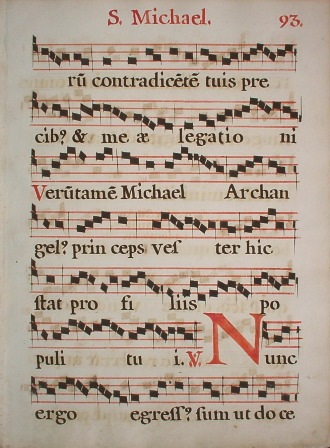 S. Michael. 93.
rū contradicētē tuis pre
cib? & me æ legatio ni
Verūtamē Michael Archan
gel? prin ceps ves ter hic
stat pro fi liis po
puli tu i. ℣. Nunc
ergo egress? sum ut do ce